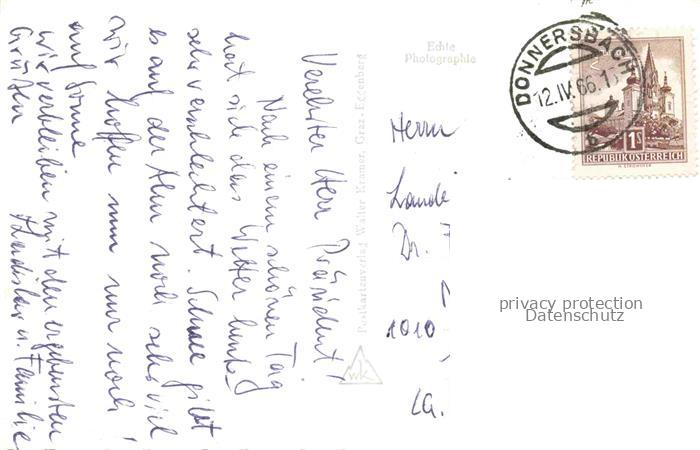 Verehrter Herr Präsident!
Nach einem schönen Tag
hat sich das Wetter heute
sehr verschlechtert. Schnee gibt
es auf der Alm noch sehr viel
wir hoffen nun nur noch
auf Sonne
wir verbleiben mit den ergebensten
Grüßen
u. Familie
Postkartenverlag Walter Kramer, Graz-Eggenberg
wk
Echte
Photographie
Herrn
Lande
Dr.
1010
DONNERSBACH
12.IV.66.1
1S
REPUBLIK ÖSTERREICH
privacy protection
Datenschutz